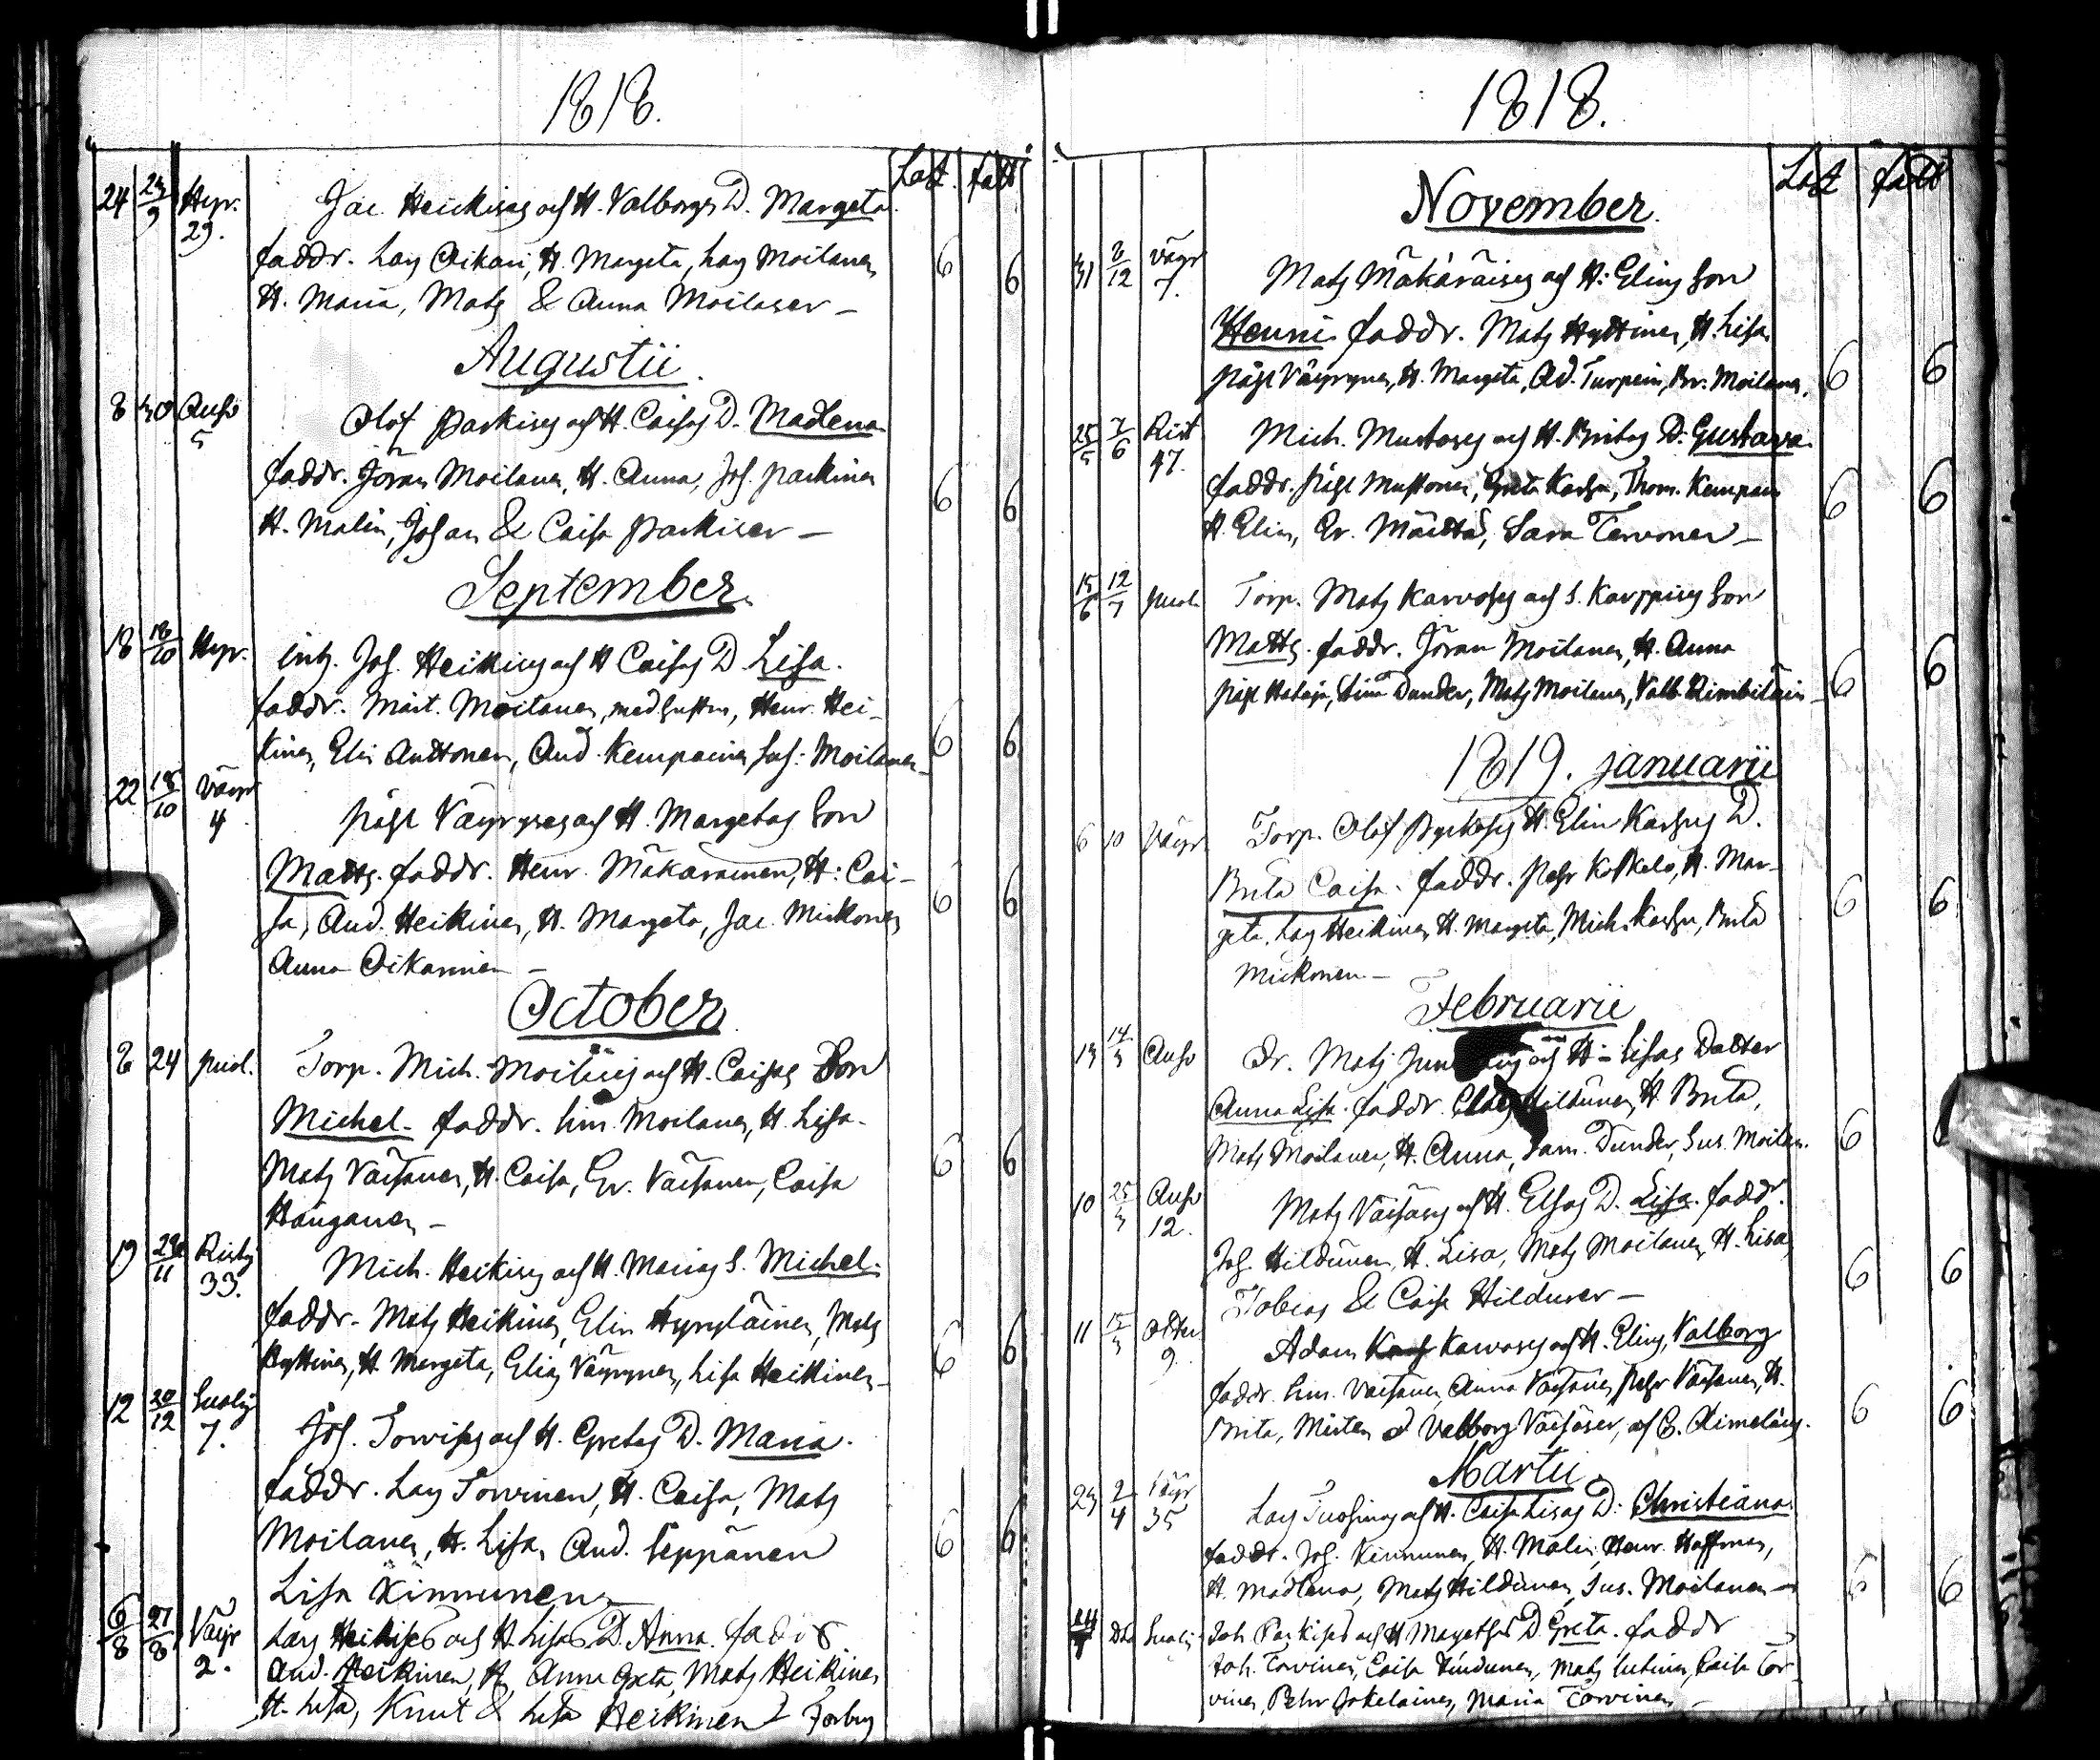 1818.
Läst. född
24 23/9 Hyr. 29. Jac. Heickises och H. Valborgs D. Margeta.
faddr. Lars Oikari, H. Margeta, Lars Moilanen 6 6
H. Maria, Mats & Anna Moilaser –
Augustii.
8 30 Auho 5 Olof Parkises och H. Caisas D. Madlena
faddr. Jöran Moilanen, H. Anna, Joh. Parkinen 6 6
H. Malin, Johan & Caisa Parkiser –
September.
18 18/10 Hyr. Joh. Heikises och H Caisas D. Lisa.
faddr. Märt. Moilanen, med hustru, Henr. Hei- 6 6
kinen, Elin Anttonen, And. Kempainen, Sus: Moilanen –
22 18/10 Väyr 4 Påhl Väyryses och H. Margetas Son
Matts. faddr. Henr. Mäkäräinen, H: Cai- 6 6
sa, And. Heikinen, H. Margeta, Jac. Mickonen
Anna Oikarinen –
October
8 24 puol. Torp. Mich. Moilases och H. Caisas Son
Michel. faddr. Sim. Moilanen, H. Lisa.
Mats Väisänen, H. Caisa, Er. Väisänen, Caisa 6 6
Hauganen –
19 29/11 Risty 33. Mich. Heikises och H. Marias S. Michel.
faddr. Mats Heikinen, Elin Hyryläinen, Mats
Hyttinen, H. Margeta, Elias Väyrynen, Lisa Heikinen – 6 6
12 20/12 Suolij 7. Joh. Torvises och H. Gretas D. Maria.
faddr. Lars Torvinen, H. Caisa, Mats
Moilanen, H. Lisa, And. Seppänen 6 6
Lisa Kinnunen –
6/8 27/8 Väyr 2. Lars Heikises och H. Lisas D. Anna. faddr
And. Heikinen, H. Anna Greta, Mats Heikinen
H. Lisa, Knut & Lisa Heikinen
1818.
Läst född
November.
31 2/12 Väyr 7. Mats Mäkäräises och H: Elins Son
Henric faddr. Mats Hyttinen, H. Lisa
Påhl Väyrynen, H. Margeta, Ad. Turpein, Br. Moilanen. 6 6
25/5 7/6 Rist 47. Mich. Mustoses och H. Britas D: Gustava.
faddr. Påhl Mustonen, Greta Karhu, Thom. Kempain 6 6
H. Elin, Er. Määttä, Sara Tervonen –
15/6 12/7 puol. Torp. Mats Karvoses och S. Karppises Son
Matts. faddr. Jöran Moilanen, H. Anna 6 6
1819. Januarii
6 10 Väyr Torp. Olof Pyyköses H. Elin Karhus D.
Brita Caisa. faddr. Pehr Koskelo, H. Mar-
geta, Lars Heikinen H. Margeta, Mich. Karhu, Brita 6 6
Mickonen –
Februarii
13 14/3 Auho Dr. Mats och H. Lisas Dotter
Anna Lisa. faddr. Hildunen, H. Brita,
Mats Moilanen, H. Anna, Sam. Dunder, Sus. Moilan. 6
10 25/3 Auho 12. Mats Väisäses och H. Elsas D. Lisa. faddr.
Joh. Hildunen, H. Lisa, Mats Moilanen, H. Lisa 6 6
Tobias & Caisa Hilduser –
11 15/3 9. Adam Karvoses och H. Elins, Valborg
faddr. Sim. Väisänen, Anna Väisänen, Pehr Väisänen, H.
Brita, Mårten & Valborg Väisäser, af 6 6
Martii.
23 2/4 Väyr 35 Lars och H. Caisa Lisas D: Christiana.
faddr. Joh. Kinnunen, H. Malin, Henr. Hoffman,
H. Madlena, Mats Hildunen, Sus. Moilanen – 6 6
Suolij Joh. Parkises och H Margethas D. Greta. faddr
Joh. Torvinen, Caisa Hindunen, Mats Lutinen, Caisa Tor-
vinen, Pehr Jokelainen, Maria Torvinen –